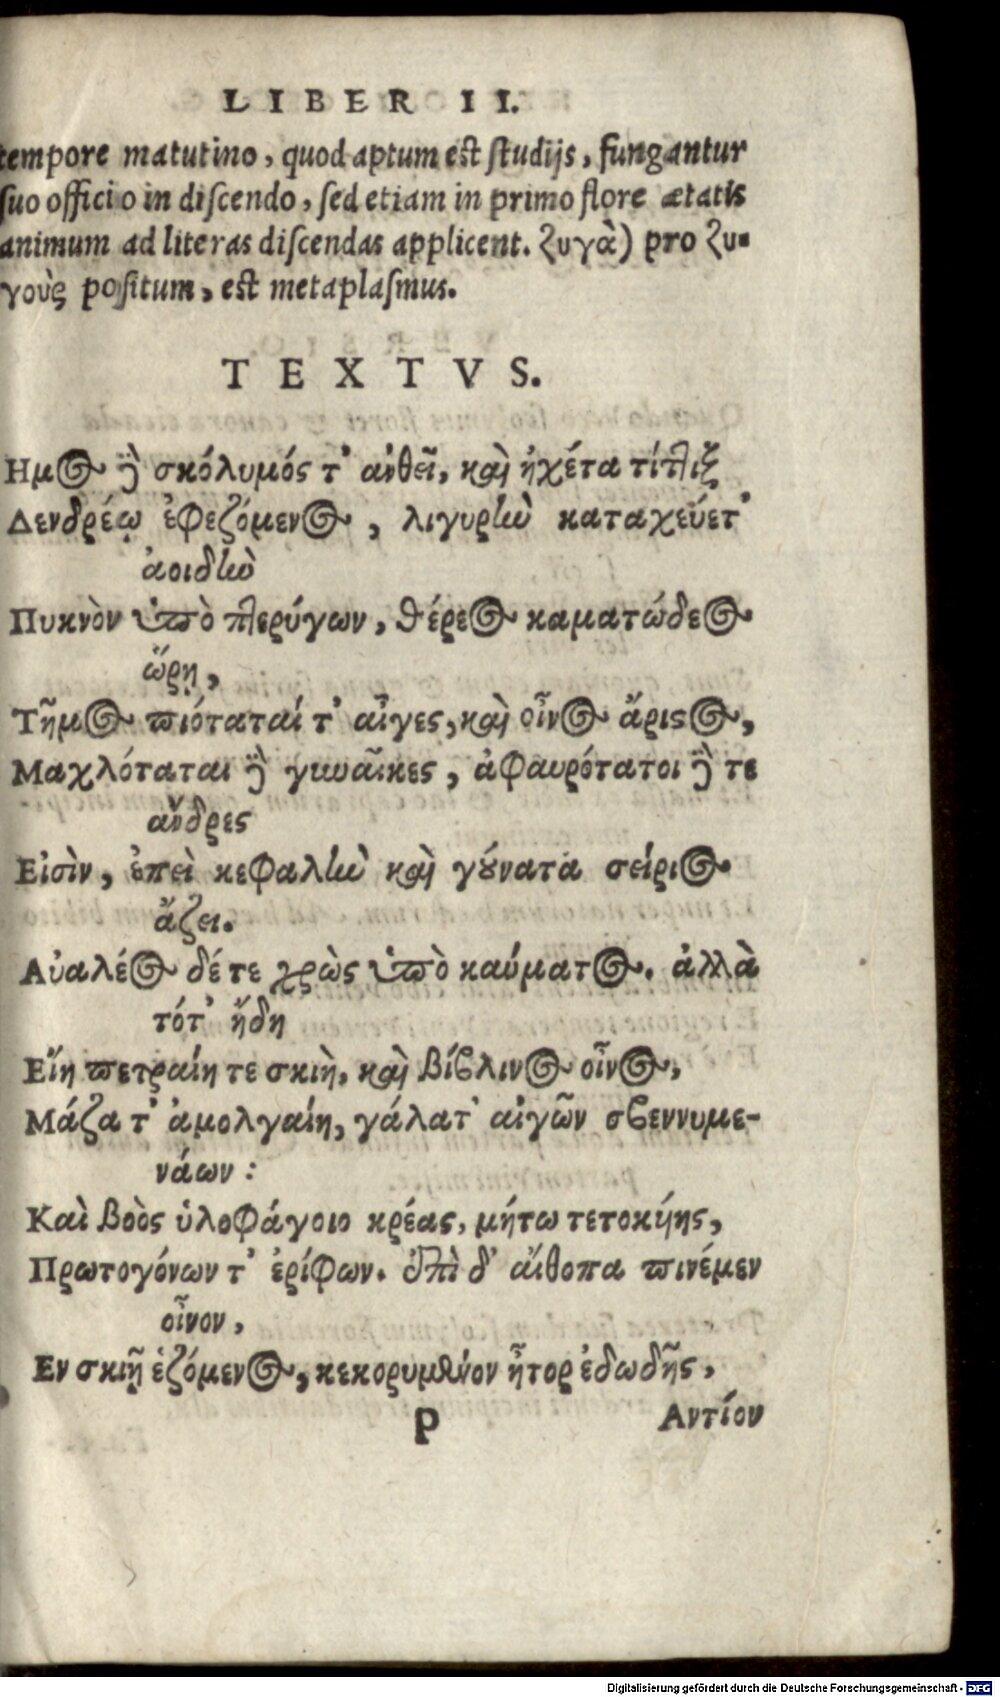 LIBER II.
tempore matutino, quod aptum est studijs, fungantur
suo officio in discendo, sed etiam in primo flore ætatis
animum ad literas discendas applicent. ζυγὰ) pro ζυ-
γοὺς positum, est metaplasmus.
TEXTVS.
Ημος δὲ σκόλυμός τ' ἀνθεῖ, καὶ ἠχέτα τέτλιξ
Δενδρέῳ ἐφεζόμενος, λιγυρὴν καταχεύετ'
ἀοιδὴν
Πυκνὸν ὑπὸ πλερύγων, θέρεος καματώδεος
ὥρῃ,
Τῆμος πιόταταί τ' αἶγες, καὶ οἶνος ἄριστος,
Μαχλόταται δὲ γυναῖκες, ἀφαυρότατοι δέ τε
ἄνδρες
Εἰσὶν, ἐπεὶ κεφαλὴν καὶ γούνατα σείριος
ἄζει.
Αὐαλέος δέ τε χρὼς ὑπὸ καύματος. ἀλλὰ
τότ' ἤδη
Εἴη πετραίη τε σκιὴ, καὶ βίβλινος οἶνος,
Μάζα τ' ἀμολγαίη, γάλατ' αἰγῶν σβεννυμε-
νάων:
Καὶ βοὸς ὑλοφάγοιο κρέας, μήπω τετοκυίης,
Πρωτογόνων τ' ἐρίφων. ἐπὶ δ' αἴθοπα πινέμεν
οἶνον,
Εν σκιῇ ἑζόμενος, κεκορυμένον ἦτορ ἐδωδῆς,
P Αντίον
Digitalisierung gefördert durch die Deutsche Forschungsgemeinschaft - DFG